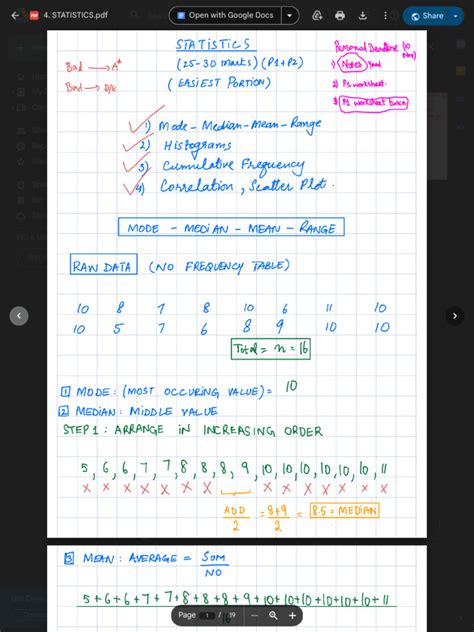 4. STATISTICS.pdf
Open with Google Docs
Share
STATISTICS
(25-30 marks) (P1+P2)
(EASIEST PORTION)
Bad → A*
Bad → D/E
Personal Deadline (10
1) Notes Read
2) P1 worksheet.
3) P1 worksheet twice
1) Mode - Median - Mean - Range
2) Histograms
3) Cumulative Frequency
4) Correlation, Scatter Plot.
MODE - MEDIAN - MEAN - RANGE
RAW DATA (NO FREQUENCY TABLE)
10 8 7 8 10 6 11 10
10 5 7 6 8 9 10 10
Total = n = 16
1 MODE: (MOST OCCURING VALUE) = 10
2 MEDIAN: MIDDLE VALUE
STEP 1: ARRANGE IN INCREASING ORDER
5, 6, 6, 7, 7, 8, 8, 8, 9, 10, 10, 10, 10, 10, 10, 11
x x x x x x x x x x x x x x
ADD/2 = 8+9/2 = 8.5 = MEDIAN
3 MEAN: AVERAGE = SUM/NO
5+6+6+7+7+8+8+8+9+10+10+10+10+10+10+11
Page 1 / 19